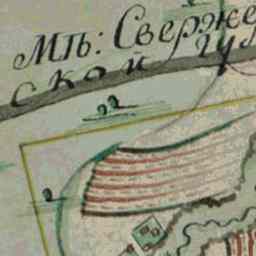 МѢ: Сверже
ской гу
22
2